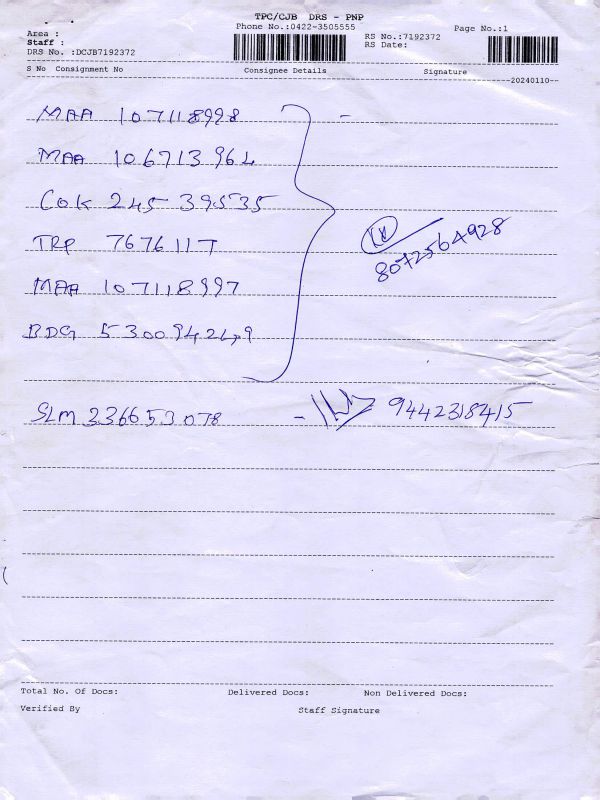 TPC/CJB DRS - PNP
Phone No.:0422-3505555
Page No.:1
Area :
Staff :
RS No.:7192372
DRS No. :DCJB7192372
RS Date:
S No Consignment No Consignee Details Signature
20240110
MAA 107118998 -
MAA 106713964
COK 245 39535
TRP 7676117
MAA 107118997
8072564928
BDG 530094249
SLM 336653078 - 9442318415
Total No. Of Docs: Delivered Docs: Non Delivered Docs:
Verified By Staff Signature